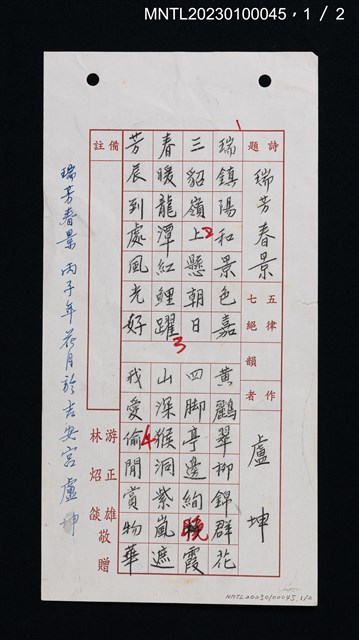 MNTL20230100045，1 / 2
1
詩題 瑞芳春景
五律 七絕 韻 作者 盧坤
瑞鎮陽和景色嘉 黃鸝翠柳錦群花
三貂嶺上懸朝日 四脚亭邊絢晚霞
2
春暖龍潭紅鯉躍 山深猴洞紫嵐遮
3
芳辰到處風光好 我愛偷閒賞物華
4
備註
游正雄 林炤燄 敬贈
瑞芳春景 丙子年花月於吉安宮盧坤
MNTL20230100045, 1/2